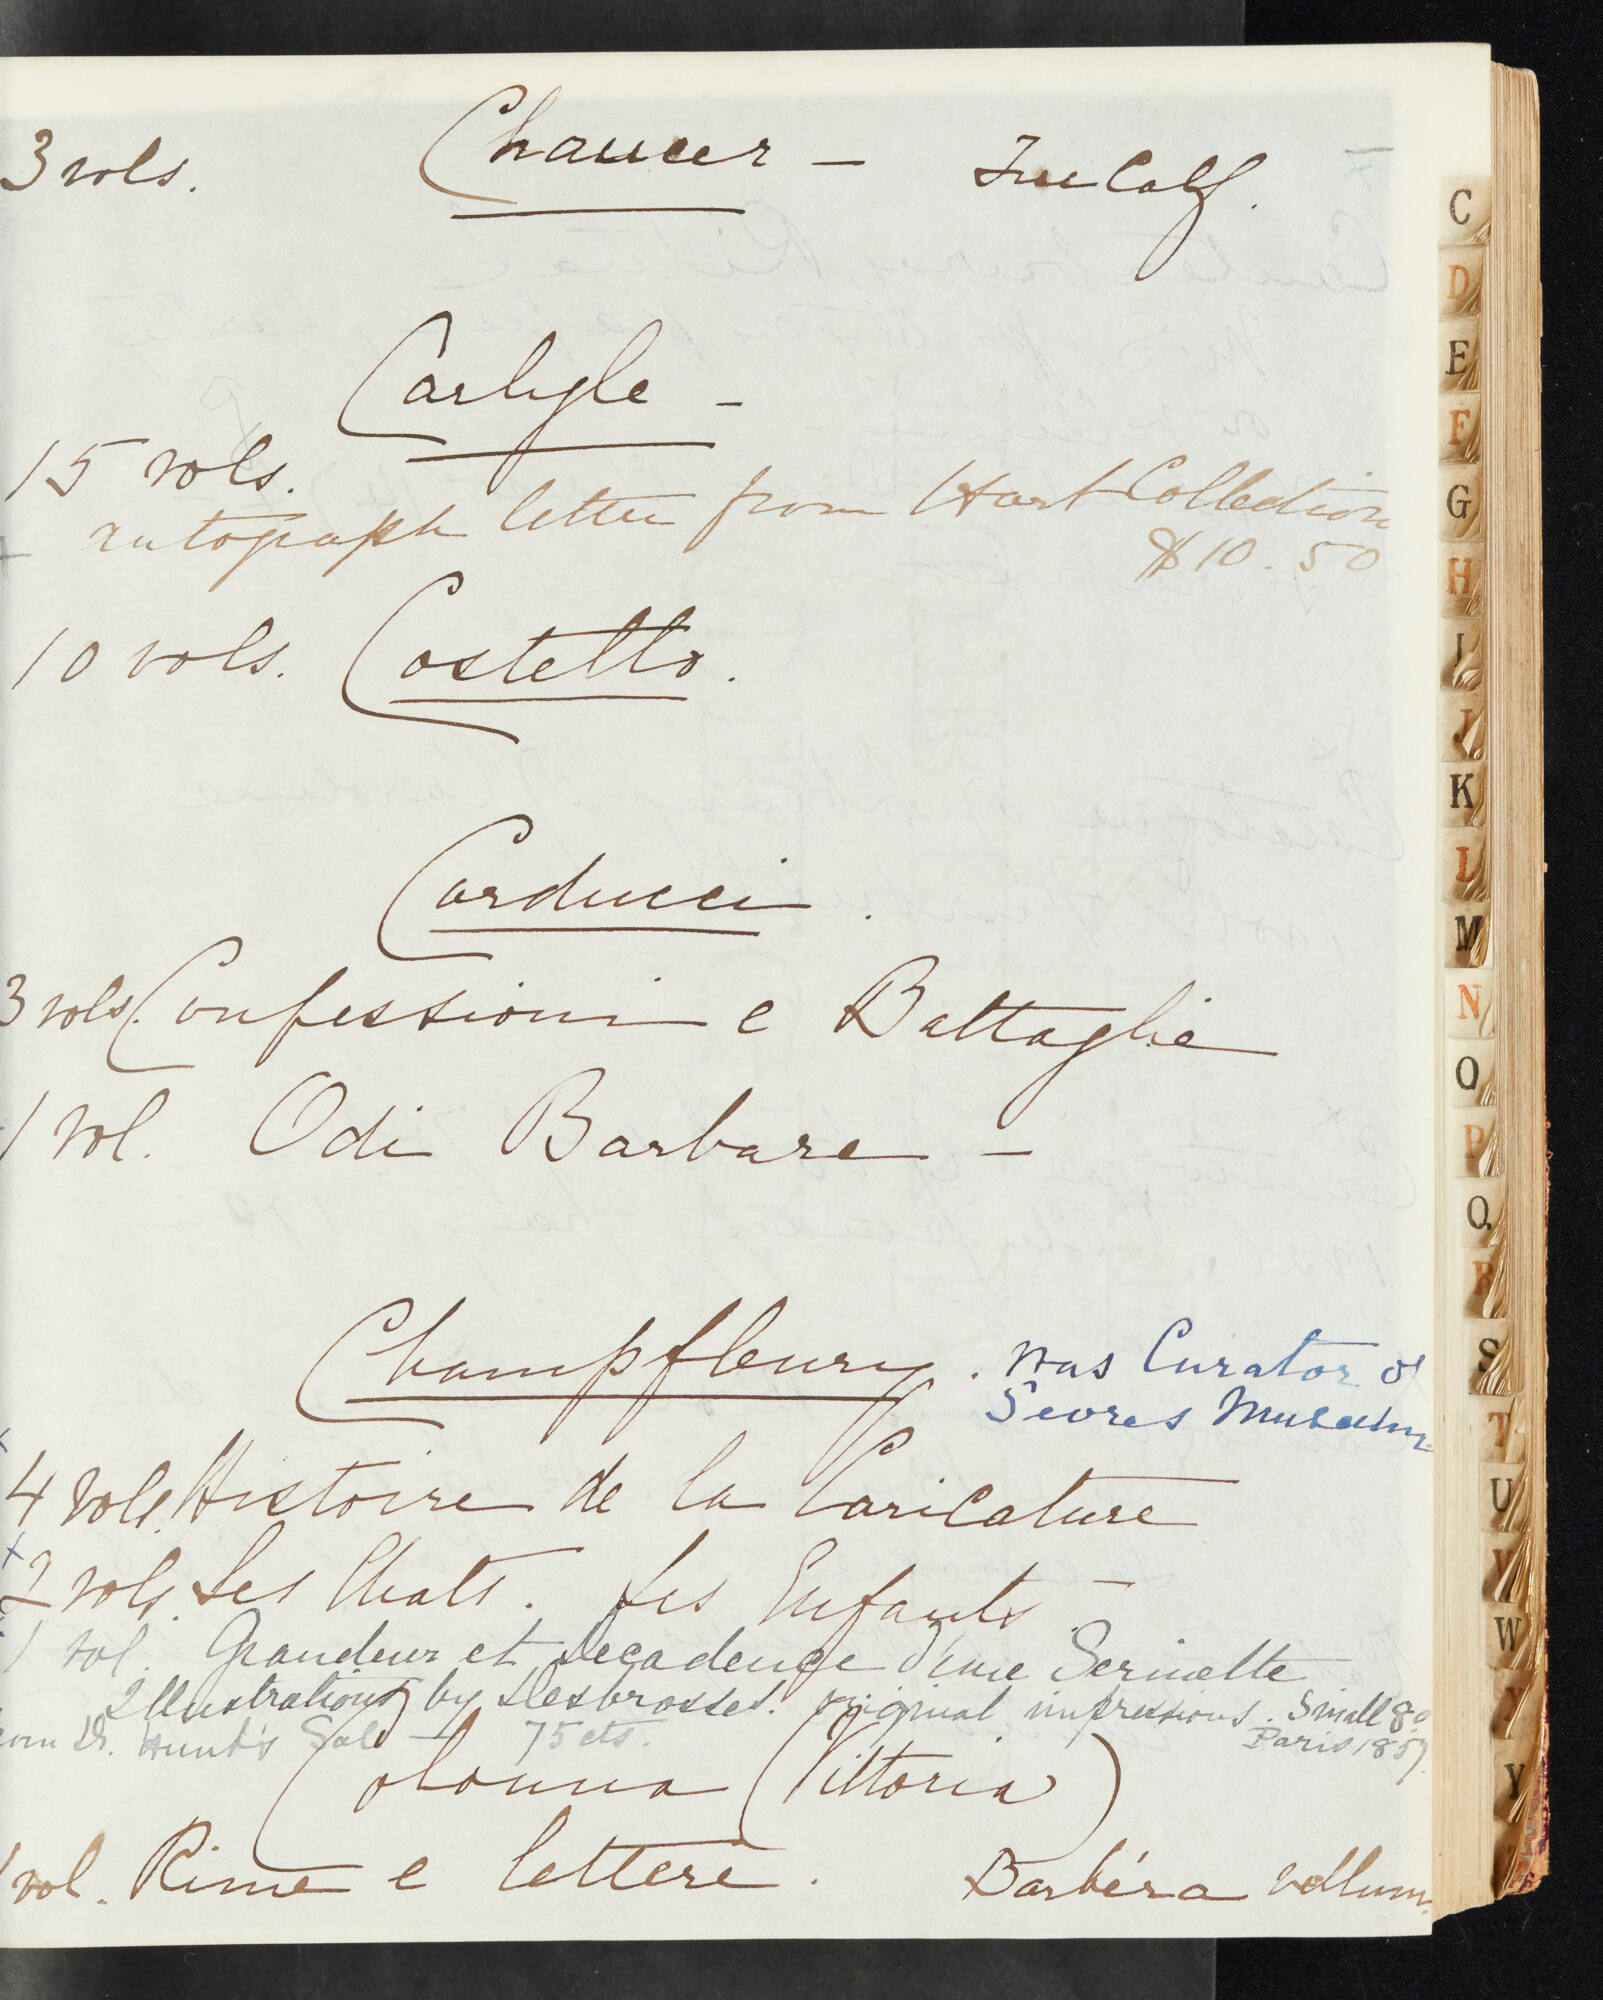 3 vols. Chaucer — Tree Calf.
Carlyle —
15 vols.
autograph letter from Hart Collection
$10.50
10 vols. Costello.
Carducci.
3 vols. Confessioni e Battaglie
1 vol. Odi Barbare —
Champfleury. was Curator of
Sevres Museum
x
4 vols. Histoire de la Caricature
x
2 vols. Les Chats. Les Enfants.
1 vol. Grandeur et Decadence d'une Serinette
Illustrations by Desbrosses. original impressions. Small 8o
from Dr. Hunt's Sale — 75 cts. Paris 1857.
Colonna (Vittoria)
1 vol. Rime e lettere. Barbéra vellum.
C
D
E
F
G
H
I
J
K
L
M
N
O
P
Q
R
S
T
U
V
W
X
Y